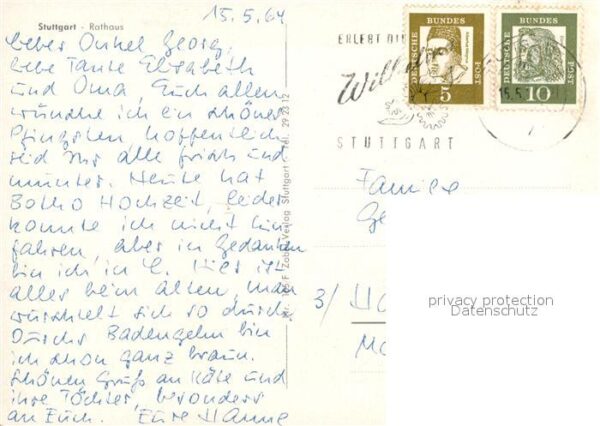 15.5.64
Stuttgart - Rathaus
Lieber Onkel Georg,
liebe Tante Elisabeth
und Oma, Euch allen
wünsche ich ein schönes
Pfingsten, hoffentlich
seid Ihr alle frisch und
munter. Heute hat
Botho Hochzeit, leider
konnte ich nicht hin
fahren, aber in Gedanken
bin ich in C. Hier ist
alles beim alten, man
wurschtelt sich so durch.
Durchs Badengehn bin
ich schon ganz braun.
Schönen Gruß an Käte und
ihre Töchter, besonders
an Euch. Eure Hanne
Verlag Stuttgart - Tel. 29 28 12
ERLEBT DIE
STUTTGART
DEUTSCHE BUNDES POST
5
DEUTSCHE BUNDES POST
10
15.5.
Familie
Ge
3/
privacy protection
Datenschutz